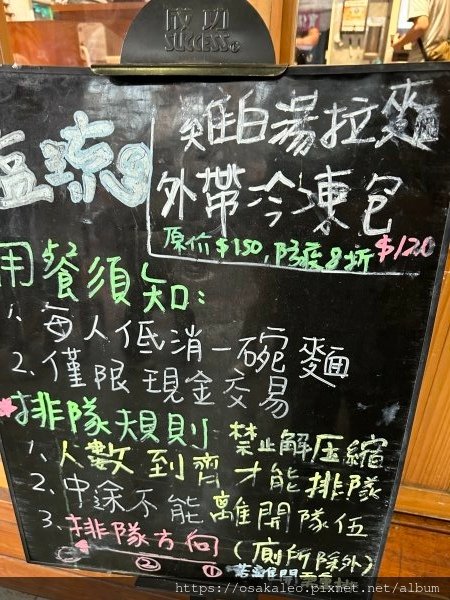 成功
SUCCESS®
塩琉
雞白湯拉麵
外帶冷凍包
原价$150,防疫8折$120
用餐須知:
1、每人低消一碗麵
2、僅限現金交易
排隊規則 禁止解压縮
1、人數到齊才能排隊
2、中途不能離開隊伍
(廁所除外)
3、排隊方向
② ①
https://osakaleo.pixnet.net/album